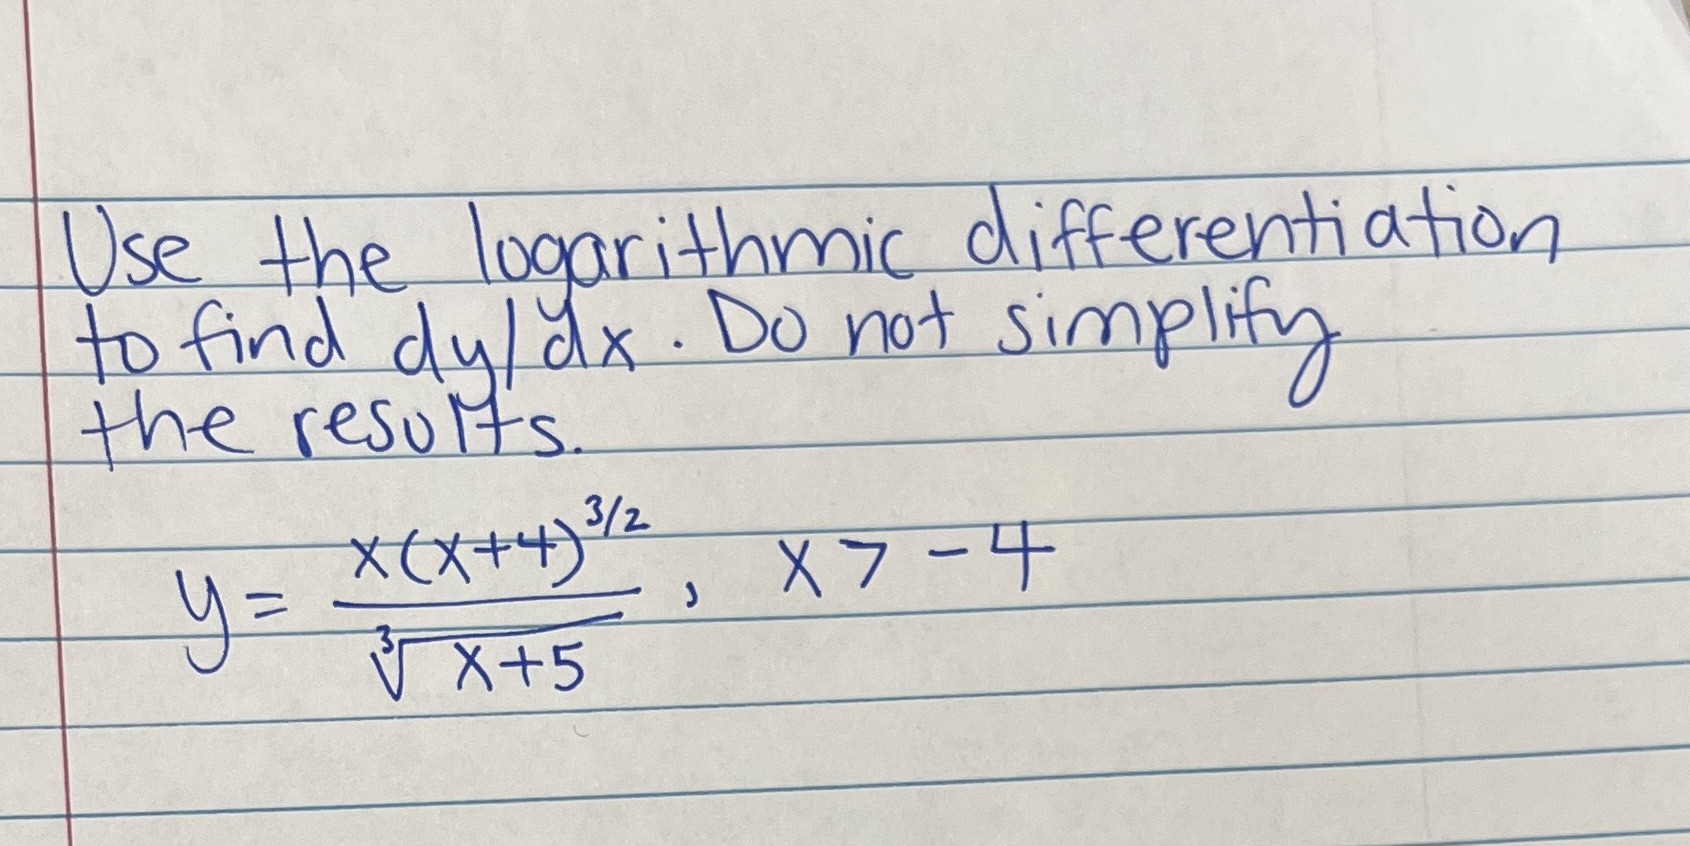 Use the logarithmic differentiation
to find dy/dx. Do not simplify
the results.
y = x(x+4)^{3/2} / ∛(x+5) , x > -4